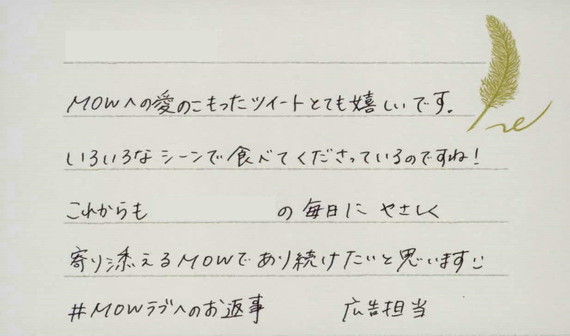 MOWへの愛のこもったツイートとても嬉しいです。
いろいろなシーンで食べてくださっているのですね!
これからも の毎日に やさしく
寄り添えるMOWであり続けたいと思います
#MOWラブへのお返事 広告担当